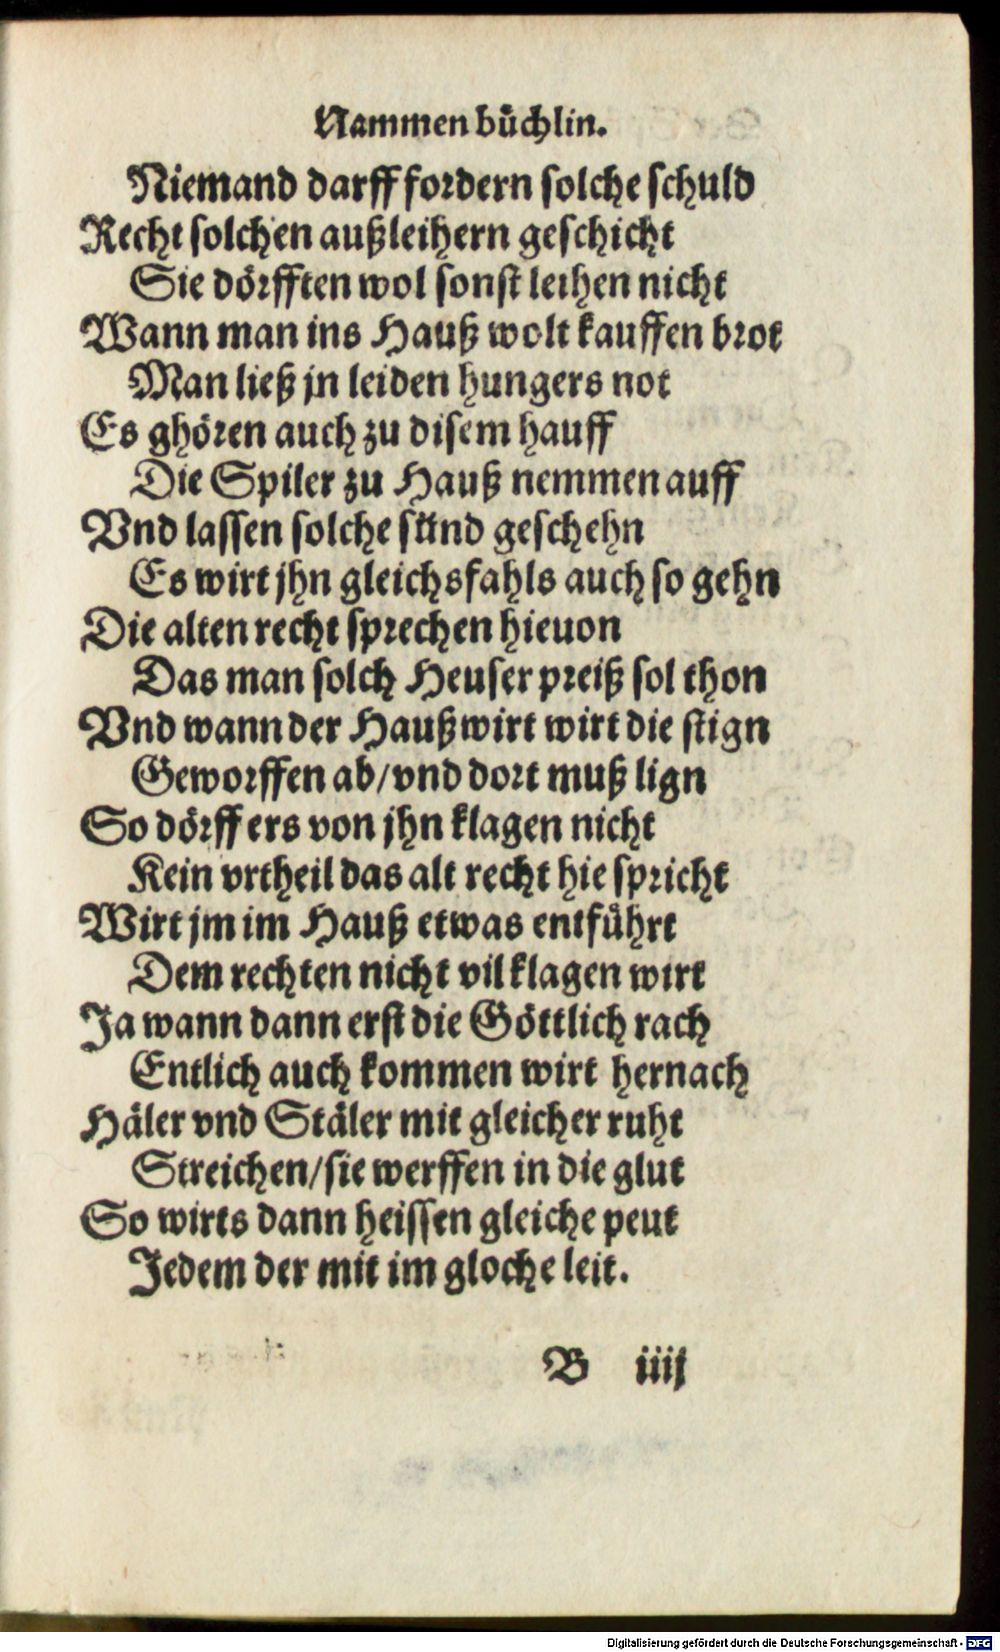 Nammen büchlin.
Niemand darff fordern solche schuld
Recht solchen außleihern geschicht
Sie dörfften wol sonst leihen nicht
Wann man ins Hauß wolt kauffen brot
Man ließ jn leiden hungers not
Es ghören auch zu disem hauff
Die Spiler zu Hauß nemmen auff
Vnd lassen solche sünd geschehn
Es wirt jhn gleichsfahls auch so gehn
Die alten recht sprechen hieuon
Das man solch Heuser preiß sol thon
Vnd wann der Haußwirt wirt die stign
Geworffen ab/vnd dort muß lign
So dörff ers von jhn klagen nicht
Kein vrtheil das alt recht hie spricht
Wirt jm im Hauß etwas entführt
Dem rechten nicht vil klagen wirt
Ja wann dann erst die Göttlich rach
Entlich auch kommen wirt hernach
Häler vnd Stäler mit gleicher ruht
Streichen/sie werffen in die glut
So wirts dann heissen gleiche peut
Jedem der mit im gloche leit.
B iiij
Digitalisierung gefördert durch die Deutsche Forschungsgemeinschaft - DFG